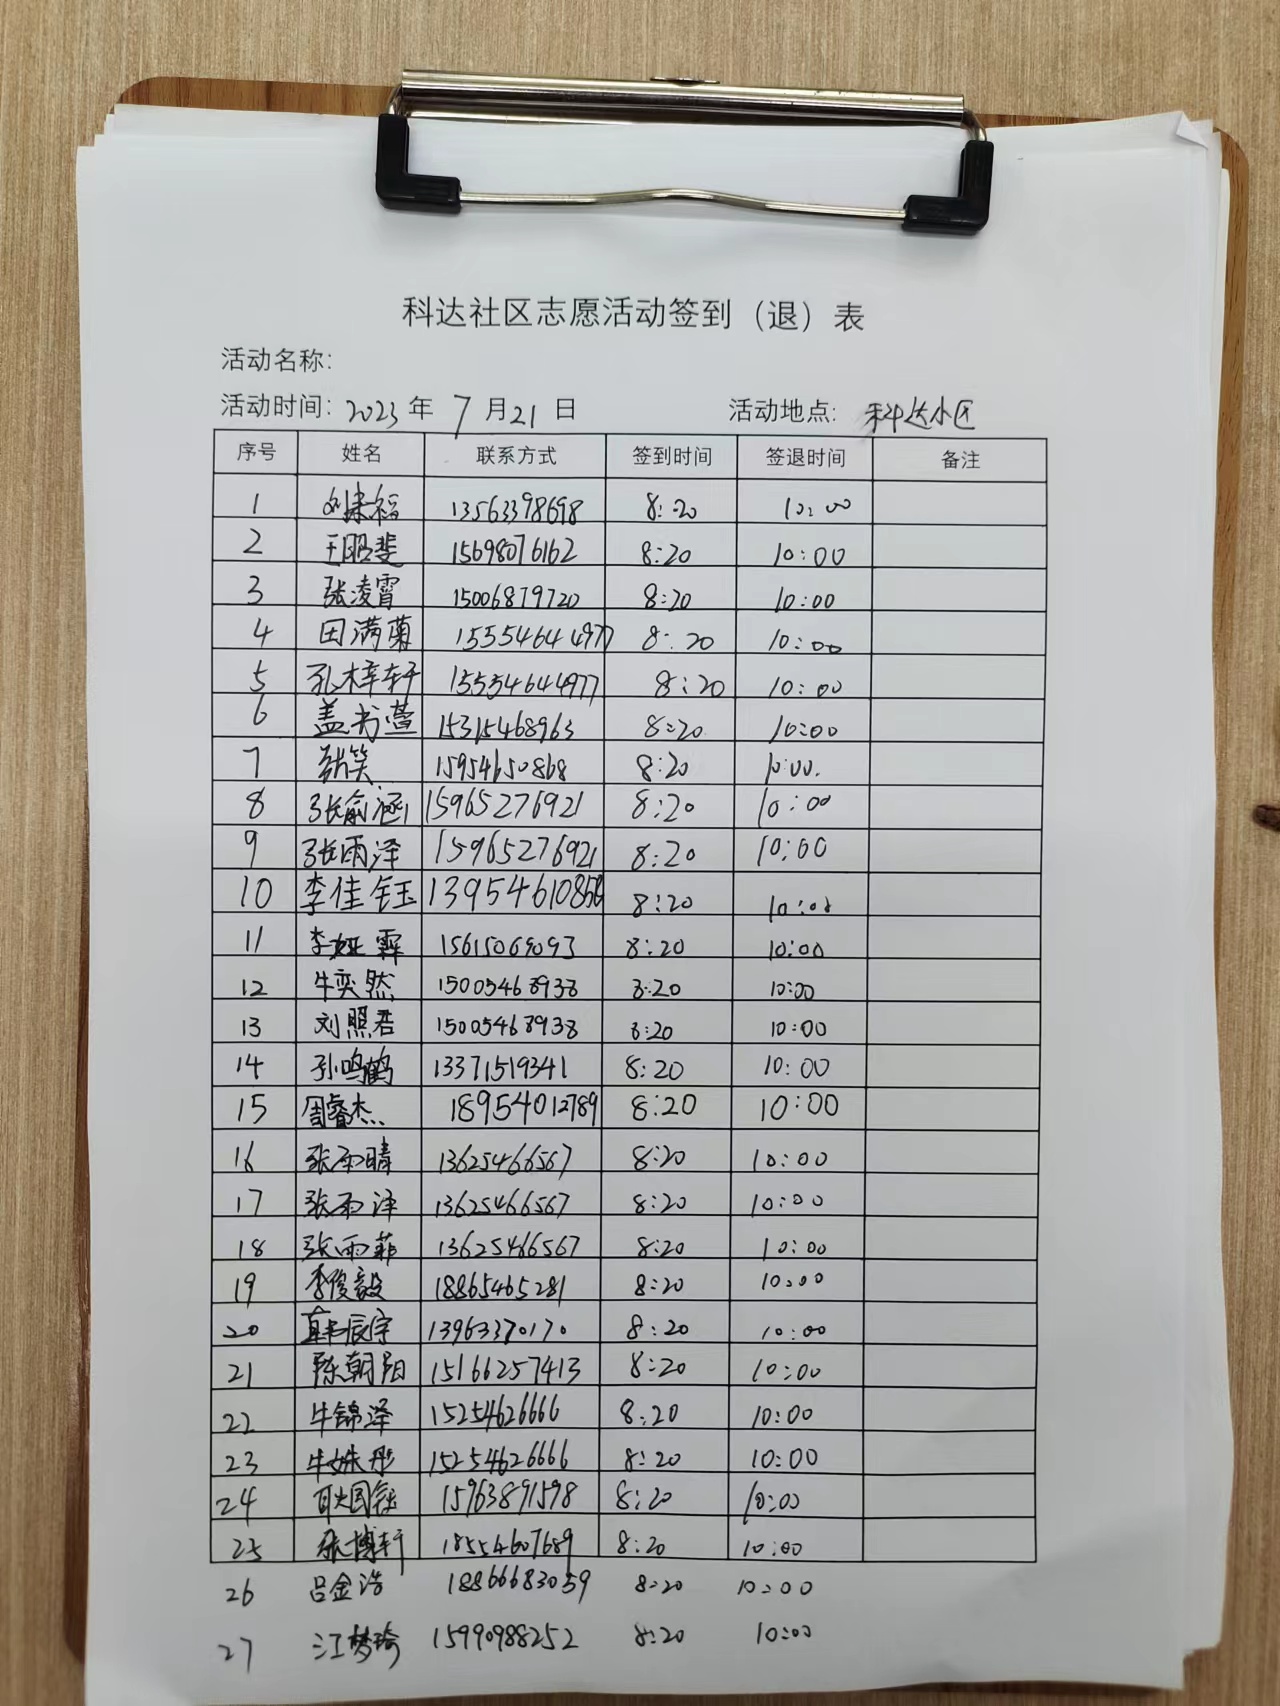 科达社区志愿活动签到（退）表
活动名称:
活动时间: 2023 年 7 月 21 日 活动地点: 科达小区
序号 姓名 联系方式 签到时间 签退时间 备注
1 刘来福 13563398698 8:20 10:00
2 王昭斐 15698076162 8:20 10:00
3 张凌霄 15006879720 8:20 10:00
4 田满菊 15554644977 8:20 10:00
5 孔梓轩 15554644977 8:20 10:00
6 盖书萱 15315468963 8:20 10:00
7 张笑 15954650868 8:20 10:00.
8 张俞涵 15965276921 8:20 10:00
9 张雨泽 15965276921 8:20 10:00
10 李佳钰 13954610858 8:20 10:00
11 李娅霖 15615069093 8:20 10:00
12 牛奕然 15005468938 8:20 10:00
13 刘照君 15005468938 8:20 10:00
14 孙鸣鹤 13371519341 8:20 10:00
15 周睿杰 18954012789 8:20 10:00
16 张雨晴 13625466567 8:20 10:00
17 张雨泽 13625466567 8:20 10:00
18 张雨菲 13625466567 8:20 10:00
19 李俊毅 18865465281 8:20 10:00
20 韩辰宇 13963370170 8:20 10:00
21 陈朝阳 15166257413 8:20 10:00
22 牛锦泽 15254626666 8:20 10:00
23 牛姝彤 15254626666 8:20 10:00
24 耿国钰 15963891598 8:20 10:00
25 张博轩 18554607689 8:20 10:00
26 吕金浩 18866683059 8:20 10:00
27 江梦琦 15990988252 8:20 10:00